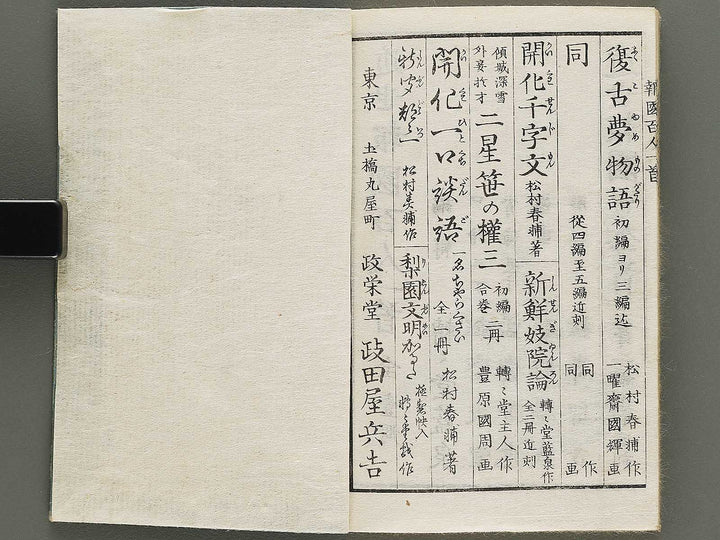 報國百人一首
復古夢物語 初編ヨリ三編迄 松村春輔作 一曜齋國輝画
同 從四編至五編近刻 同作 同画
開化千字文 松村春輔著
新鮮妓院論 轉々堂藍泉作 全二冊近刻
傾城深雪 外妾拔才 二星笹の權三 初編二冊 合巻 轉々堂主人作 豊原國周画
開化一口談語 全一冊 松村春輔著
松村春輔作
梨園文明かるた 極製帙入
東京 土橋丸屋町 政栄堂 政田屋兵吉